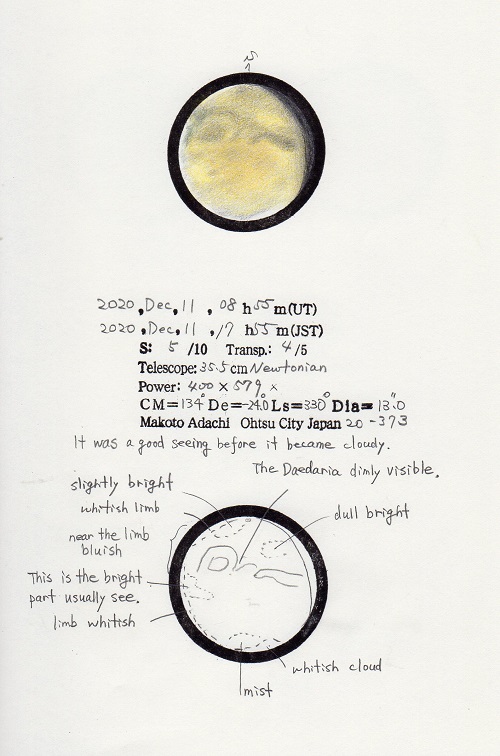 S
2020, Dec, 11, 08 h 55 m (UT)
2020, Dec, 11, 17 h 55 m (JST)
S: 5 /10 Transp.: 4 /5
Telescope: 35.5 cm Newtonian
Power: 400 × 579 ×
CM=134° De=-24.0 Ls=330° Dia=13.0"
Makoto Adachi Ohtsu City Japan 20-373
It was a good seeing before it became cloudy.
The Daedaria dimly visible.
slightly bright
whitish limb
dull bright
near the limb
bluish
This is the bright
part usually see.
limb whitish
whitish cloud
mist